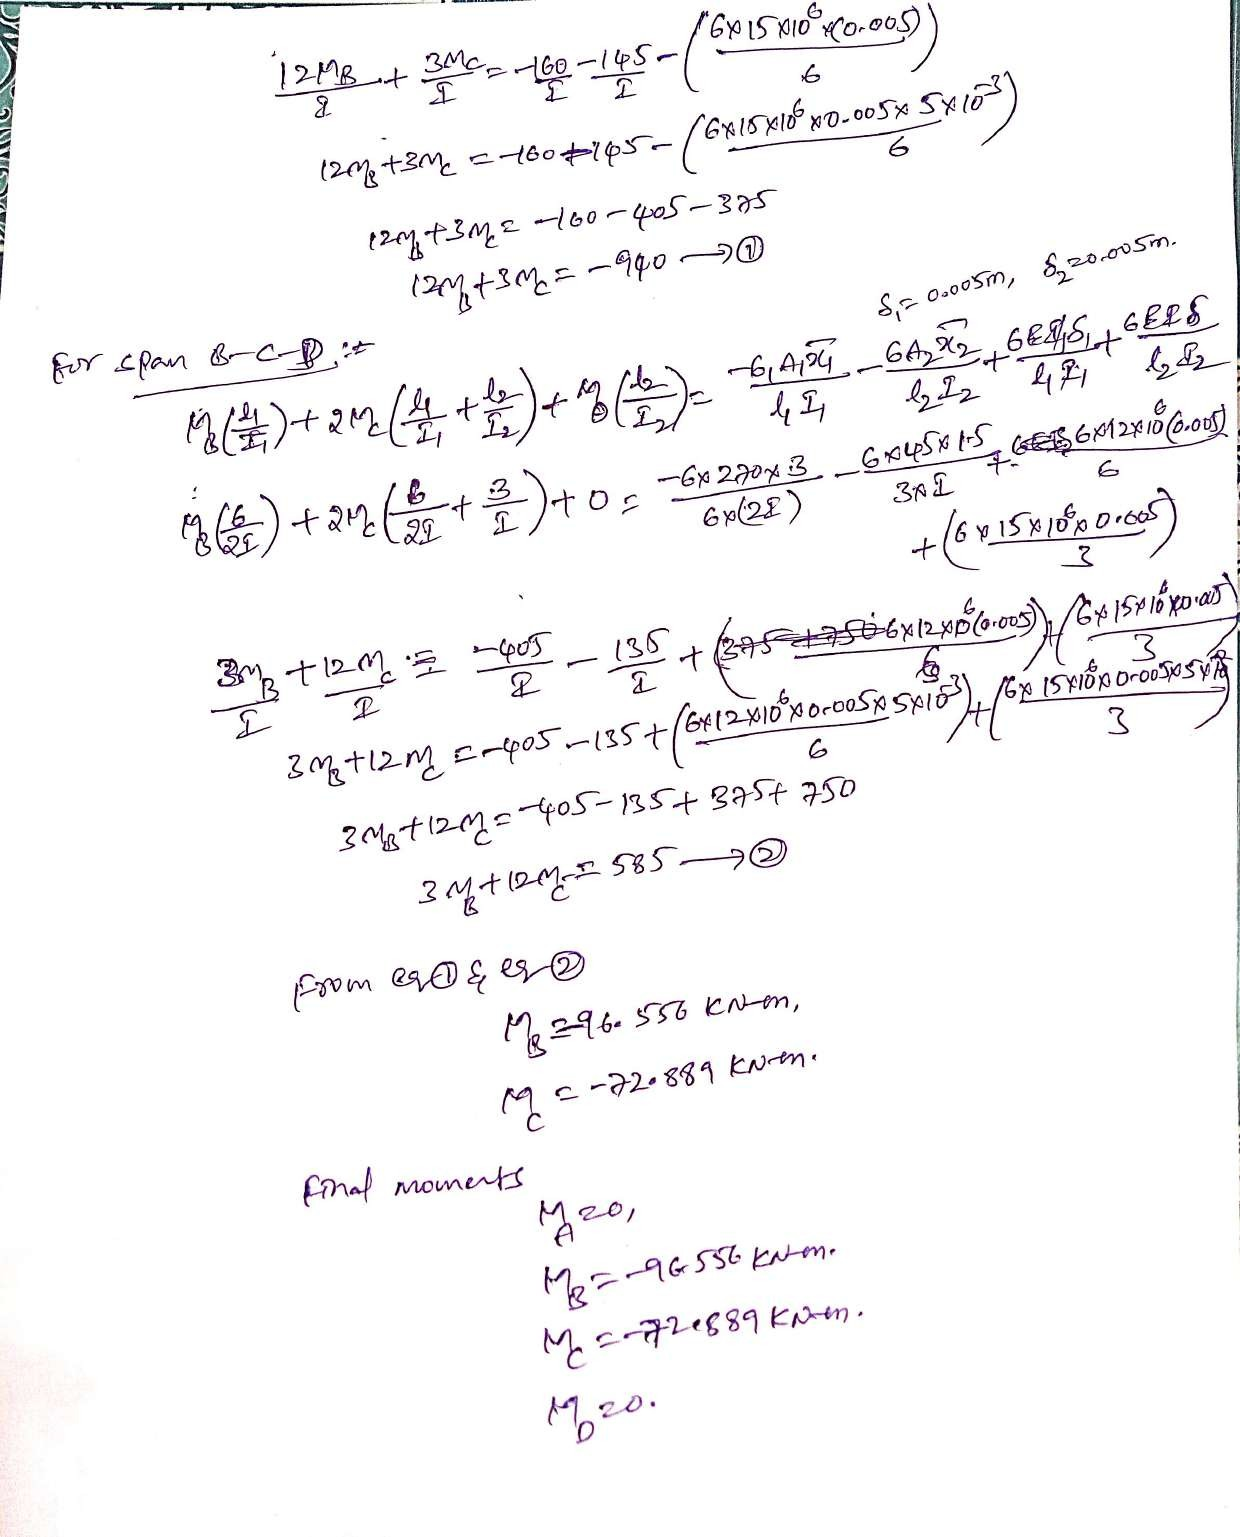 12MB/I + 3MC/I = -160/I - 145/I - (6×15×10^6×(0.005)/6)
12MB+3MC = -160 + 145 - (6×15×10^6×0.005×5×10^-3/6)
12MB+3MC = -160-405-375
12MB+3MC = -940 → ①
δ1 = 0.005m, δ2=0.005m.
For span B-C-D :-
MB(l1/I1) + 2MC(l1/I1 + l2/I2) + MD(l2/I2) = -6,A1x̄1/l1I1 - 6A2x̄2/l2I2 + 6EI1δ1/l1I1 + 6EIδ/l2I2
MB(6/2I) + 2MC(6/2I + 3/I) + 0 = -6×270×3/6×(2I) - 6×45×1.5/3×I + 6×12×10^6(0.005)/6
+ (6×15×10^6×0.005/3)
3MB/I + 12MC/I = -405/I - 135/I + (6×12×10^6(0.005)/6) + (6×15×10^6×0.005/3)
3MB+12MC = -405-135+(6×12×10^6×0.005×5×10^-3/6) + (6×15×10^6×0.005×5×10/3)
3MB+12MC = -405-135+375+750
3MB+12MC = 585 → ②
From eq① & eq②
MB=-96.556 KN-m,
MC = -72.889 KN-m.
Final moments
MA=0,
MB = -96.556 KN-m.
MC = -72.889 KN-m.
MD=0.